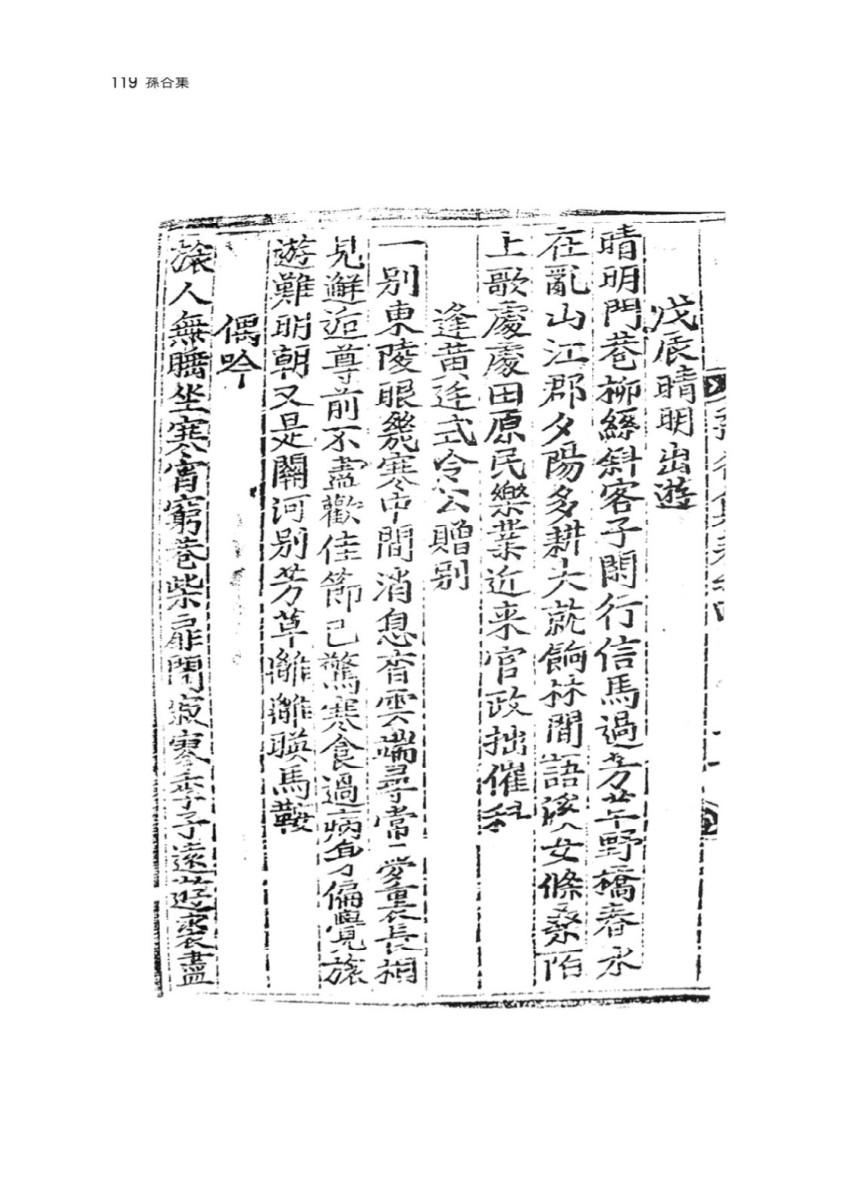 119 孫合集
戊辰晴明出遊
晴明門巷柳絲斜客子閑行信馬過芳草野橋春水
在亂山江郡夕陽多耕夫就餉林間語 女條桑陌
上歌處處田原民樂業近来官政拙催科
逢黃廷式令公贈别
一别東陵眼幾寒中間消息杳雲端尋常一夢重 長相
見邂逅尊前不盡歡佳節已驚寒食過病 偏覺旅
遊難明朝又是關河别芳草離離映馬鞍
偶吟
旅人無 坐寒宵窮巷柴扉閉寂寥季子遠遊裘盡